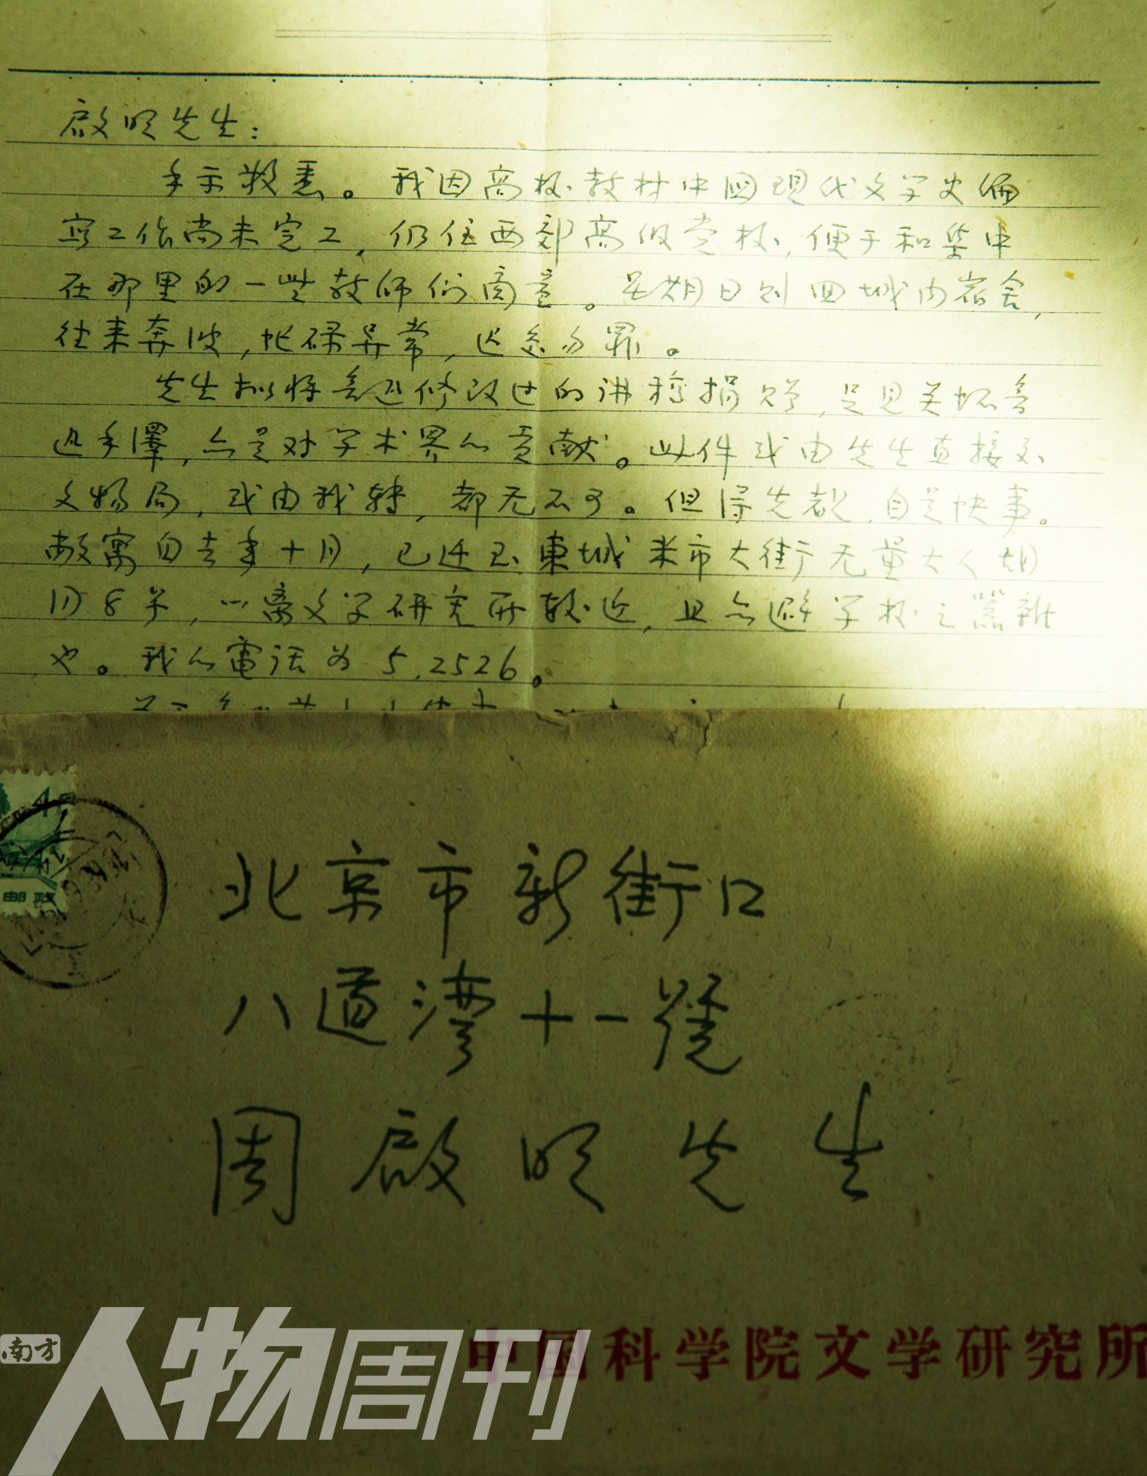 啟明先生：
手示敬悉。我因高校教材中国现代文学史编
写工作尚未完工，仍住西郊高级党校，便于和集中
在那里的一些教师们商量。星期日则回城内宿舍，
往来奔波，忙碌异常，迟复为罪。
先生拟将鲁迅修改过的讲稿捐赠，足见关怀鲁
迅手澤，亦是对学术界的贡献。此件或由先生直接交
文物局，或由我转，都无不可。但得先覩，自是快事。
敝寓自去年十月，已迁至東城米市大街无量大人胡
同8号，以离文学研究所较近，且亦避学校之嚣雜
也。我的電话为5.2526。
4
邮政
北京市新街口
八道湾十一號
周啟明先生
中国科学院文学研究所
南方
人物周刊